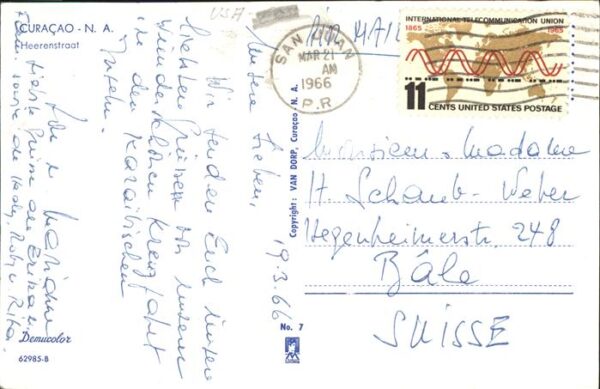 CURAÇAO - N. A.
Heerenstraat
USA
AIR MAIL
SAN JUAN
MAR 21
AM
1966
P.R
INTERNATIONAL TELECOMMUNICATION UNION
1865 1965
11 CENTS UNITED STATES POSTAGE
19.3.66
Meine Lieben,
Wir senden Euch
lieben Grüsse von unserer
wunderschönen Kreuzfahrt
in den Karaibischen
Inseln.
Marianne
Copyright: VAN DORP, Curaçao - N. A.
No. 7
Monsieur + Madame
H. Schaub-Weber
Hegenheimerstr. 248
Bâle
SUISSE
Demucolor
62985-B